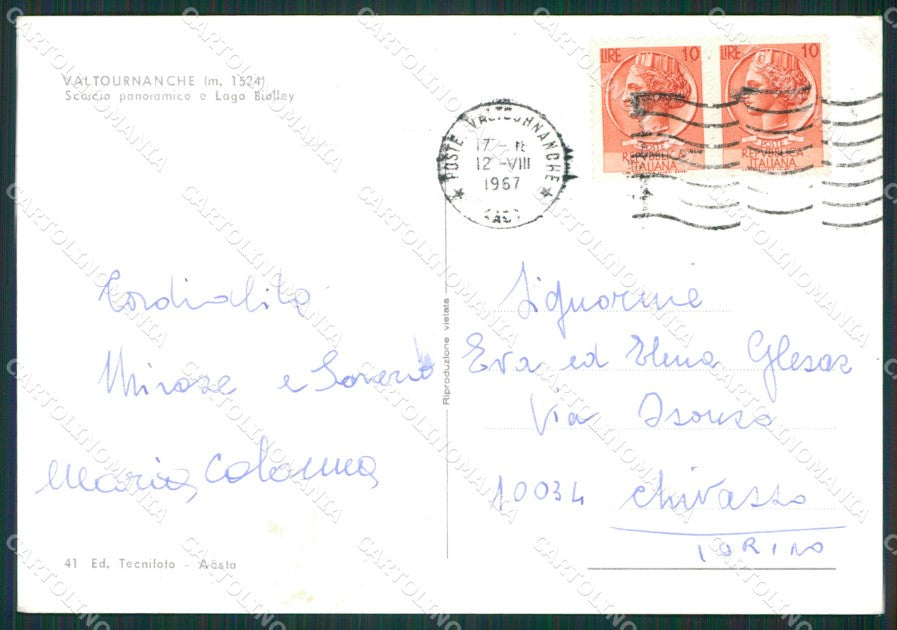 VALTOURNANCHE (m. 1524)
Scorcio panoramico e Lago Biolley
LIRE 10
POSTE REPUBBLICA
ITALIANA
LIRE 10
POSTE REPUBBLICA
ITALIANA
POSTE VALTOURNANCHE
17 -
12 -VIII
1967
(AO)
Cordialità
e
Maria, Colomna
Riproduzione vietata
Signorine
Eva ed Elena
Via Isonzo
10034 Chivasso
TORINO
41 Ed. Tecnifoto - Aosta
CARTOLINOMANIA